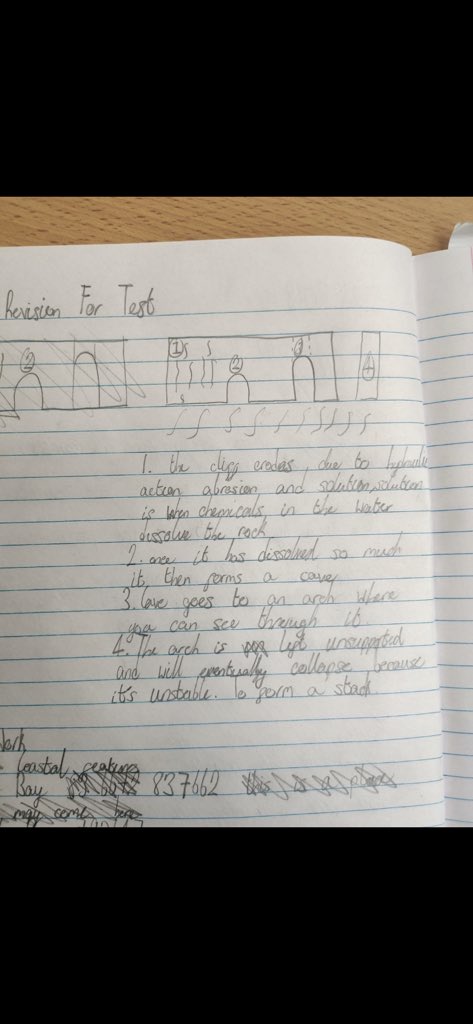 Revision For Test
② ① ② ③ ④
1. the cliff erodes, due to hydraulic
action, abrasion and solution, solution
is when chemicals, in the water
dissolve the rock
2. once it has dissolved so much
it, then forms a cave,
3. Cave goes to an arch where
you can see through it.
4. The arch is left unsupported
and will eventually collapse because
it's unstable. to form a stack.
Work
Coastal features
Bay 837662
may come here